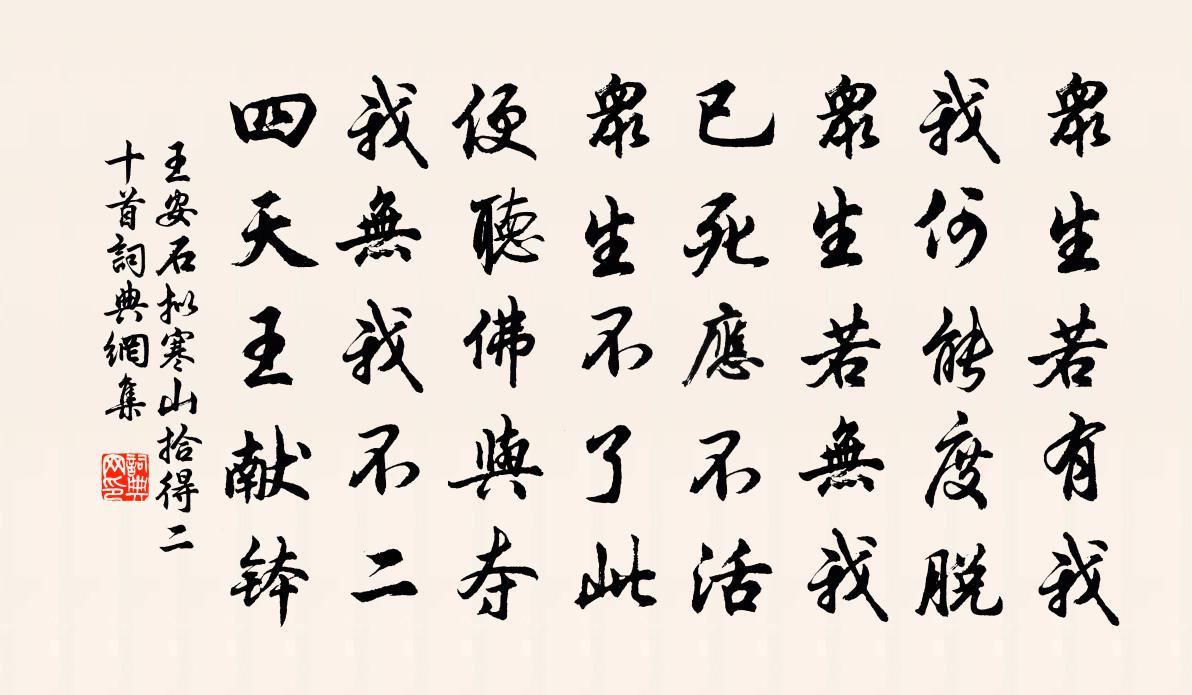 眾生若有我
我何能度脫
眾生若無我
已死應不活
眾生不了此
便聽佛與夺
我無我不二
四天王献鉢
王安石拟寒山拾得二
十首詞典網集
詞典
网印